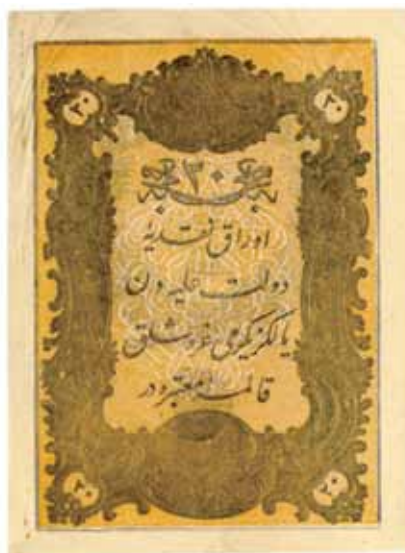 ٢٠ ٢٠
٢٠
اوراق نقدیهٔ
دولت علیه دن
یالکز یکرمی غروشلق
قائمه معتبره در
٢٠ ٢٠